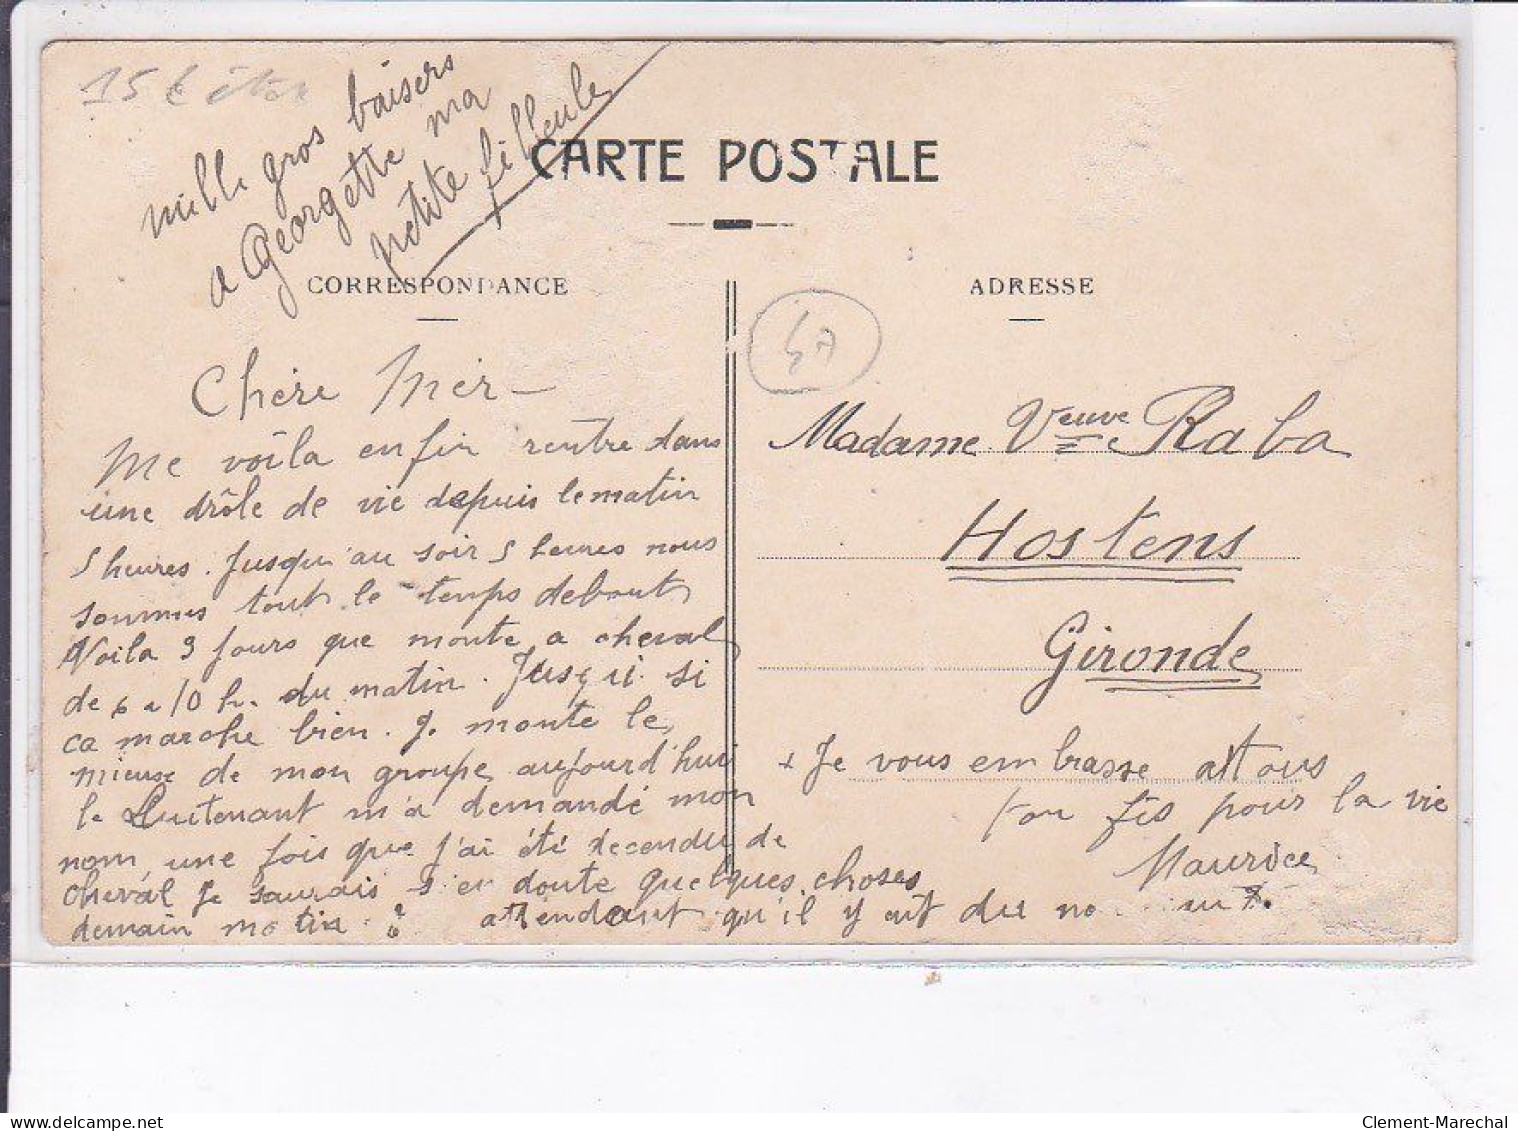 15 €
mille gros baisers
a Georgette ma
petite filleule
CARTE POSTALE
CORRESPONDANCE
ADRESSE
47
Chère Mèr
Me voîla enfin rentre dans
une drôle de vie depuis le matin
5 heures. Jusqu'au soir 5 heures nous
sommes tout le temps debout
Voila 3 jours que monte a cheval
de 6 a 10 h. du matin. Jusqu'i si
ca marche bien. Je monte le
mieuse de mon groupe aujourd'hui
le Luitenant m'a demandé mon
nom une fois que j'ai été decendu de
cheval Je saurais s'en doute quelques choses
demain matin ? attendant qu'il y ait du no
Madame Veuve Raba
Hostens
Gironde
+ Je vous embrasse attous
ton fis pour la vie
Maurice
Clement-Marechal
delcampe.net